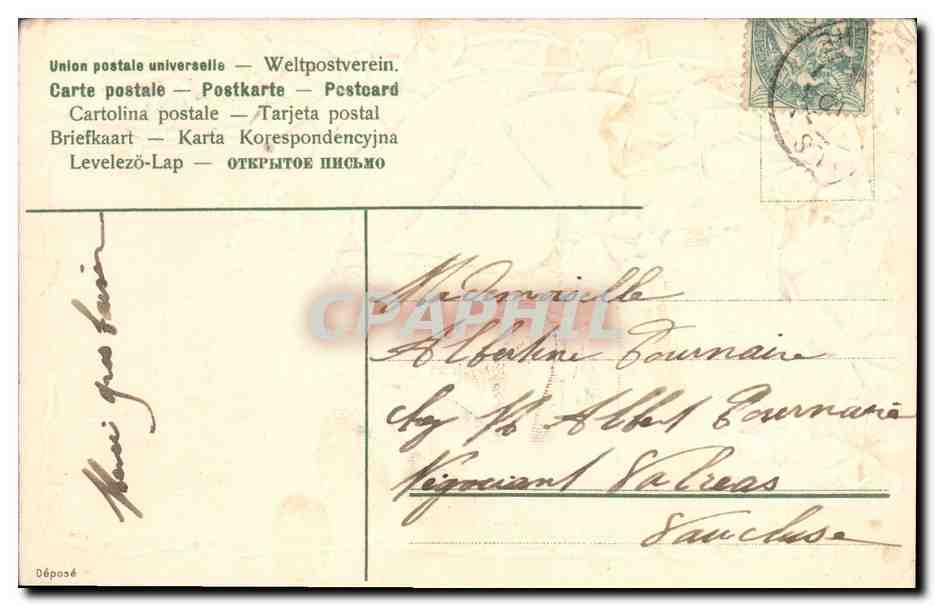 Union postale universelle — Weltpostverein.
Carte postale — Postkarte — Postcard
Cartolina postale — Tarjeta postal
Briefkaart — Karta Korespondencyjna
Levelező-Lap — ОТКРЫТОЕ ПИСЬМО
Merci gros baiser
Mademoiselle
Albertine Tournaire
chez Mr Albert Tournaire
Négociant Valreas
Vaucluse
Déposé
CPAPHIL